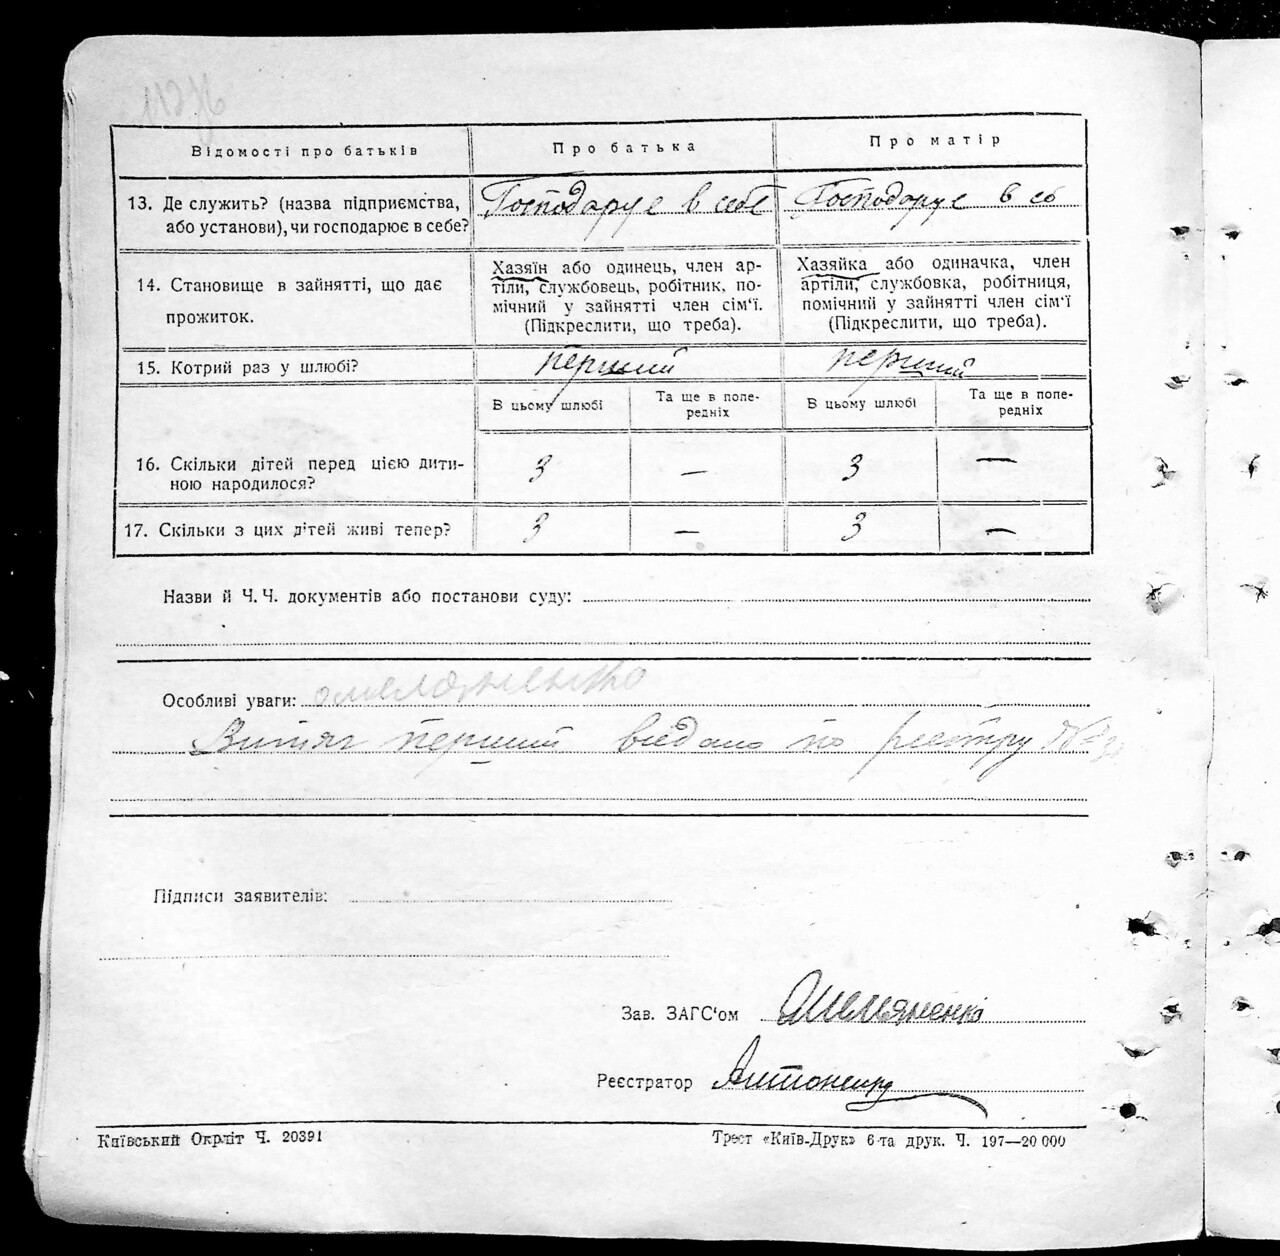 Відомості про батьків Про батька Про матір
13. Де служить? (назва підприємства, або установи), чи господарює в себе? Господарує в себе Господарує в себ
14. Становище в зайнятті, що дає прожиток.
Хазяїн або одинець, член ар-
тіли, службовець, робітник, по-
мічний у зайнятті член сім'ї.
(Підкреслити, що треба).
Хазяйка або одиначка, член
артіли, службовка, робітниця,
помічний у зайнятті член сім'ї
(Підкреслити, що треба).
15. Котрий раз у шлюбі? перший перший
В цьому шлюбі Та ще в попе-редніх В цьому шлюбі Та ще в попе-редніх
16. Скільки дітей перед цією дити-
ною народилося? 3 — 3 —
17. Скільки з цих дітей живі тепер? 3 — 3 —
Назви й Ч. Ч. документів або постанови суду:
Особливі уваги: Омеляненко
Витяг перший видано по реєстру №
Підписи заявителів:
Зав. ЗАГС'ом Омеляненко
Реєстратор Антоненко
Київський Окрліт Ч. 20391 Трест «Київ-Друк» 6-та друк. Ч. 197—20 000